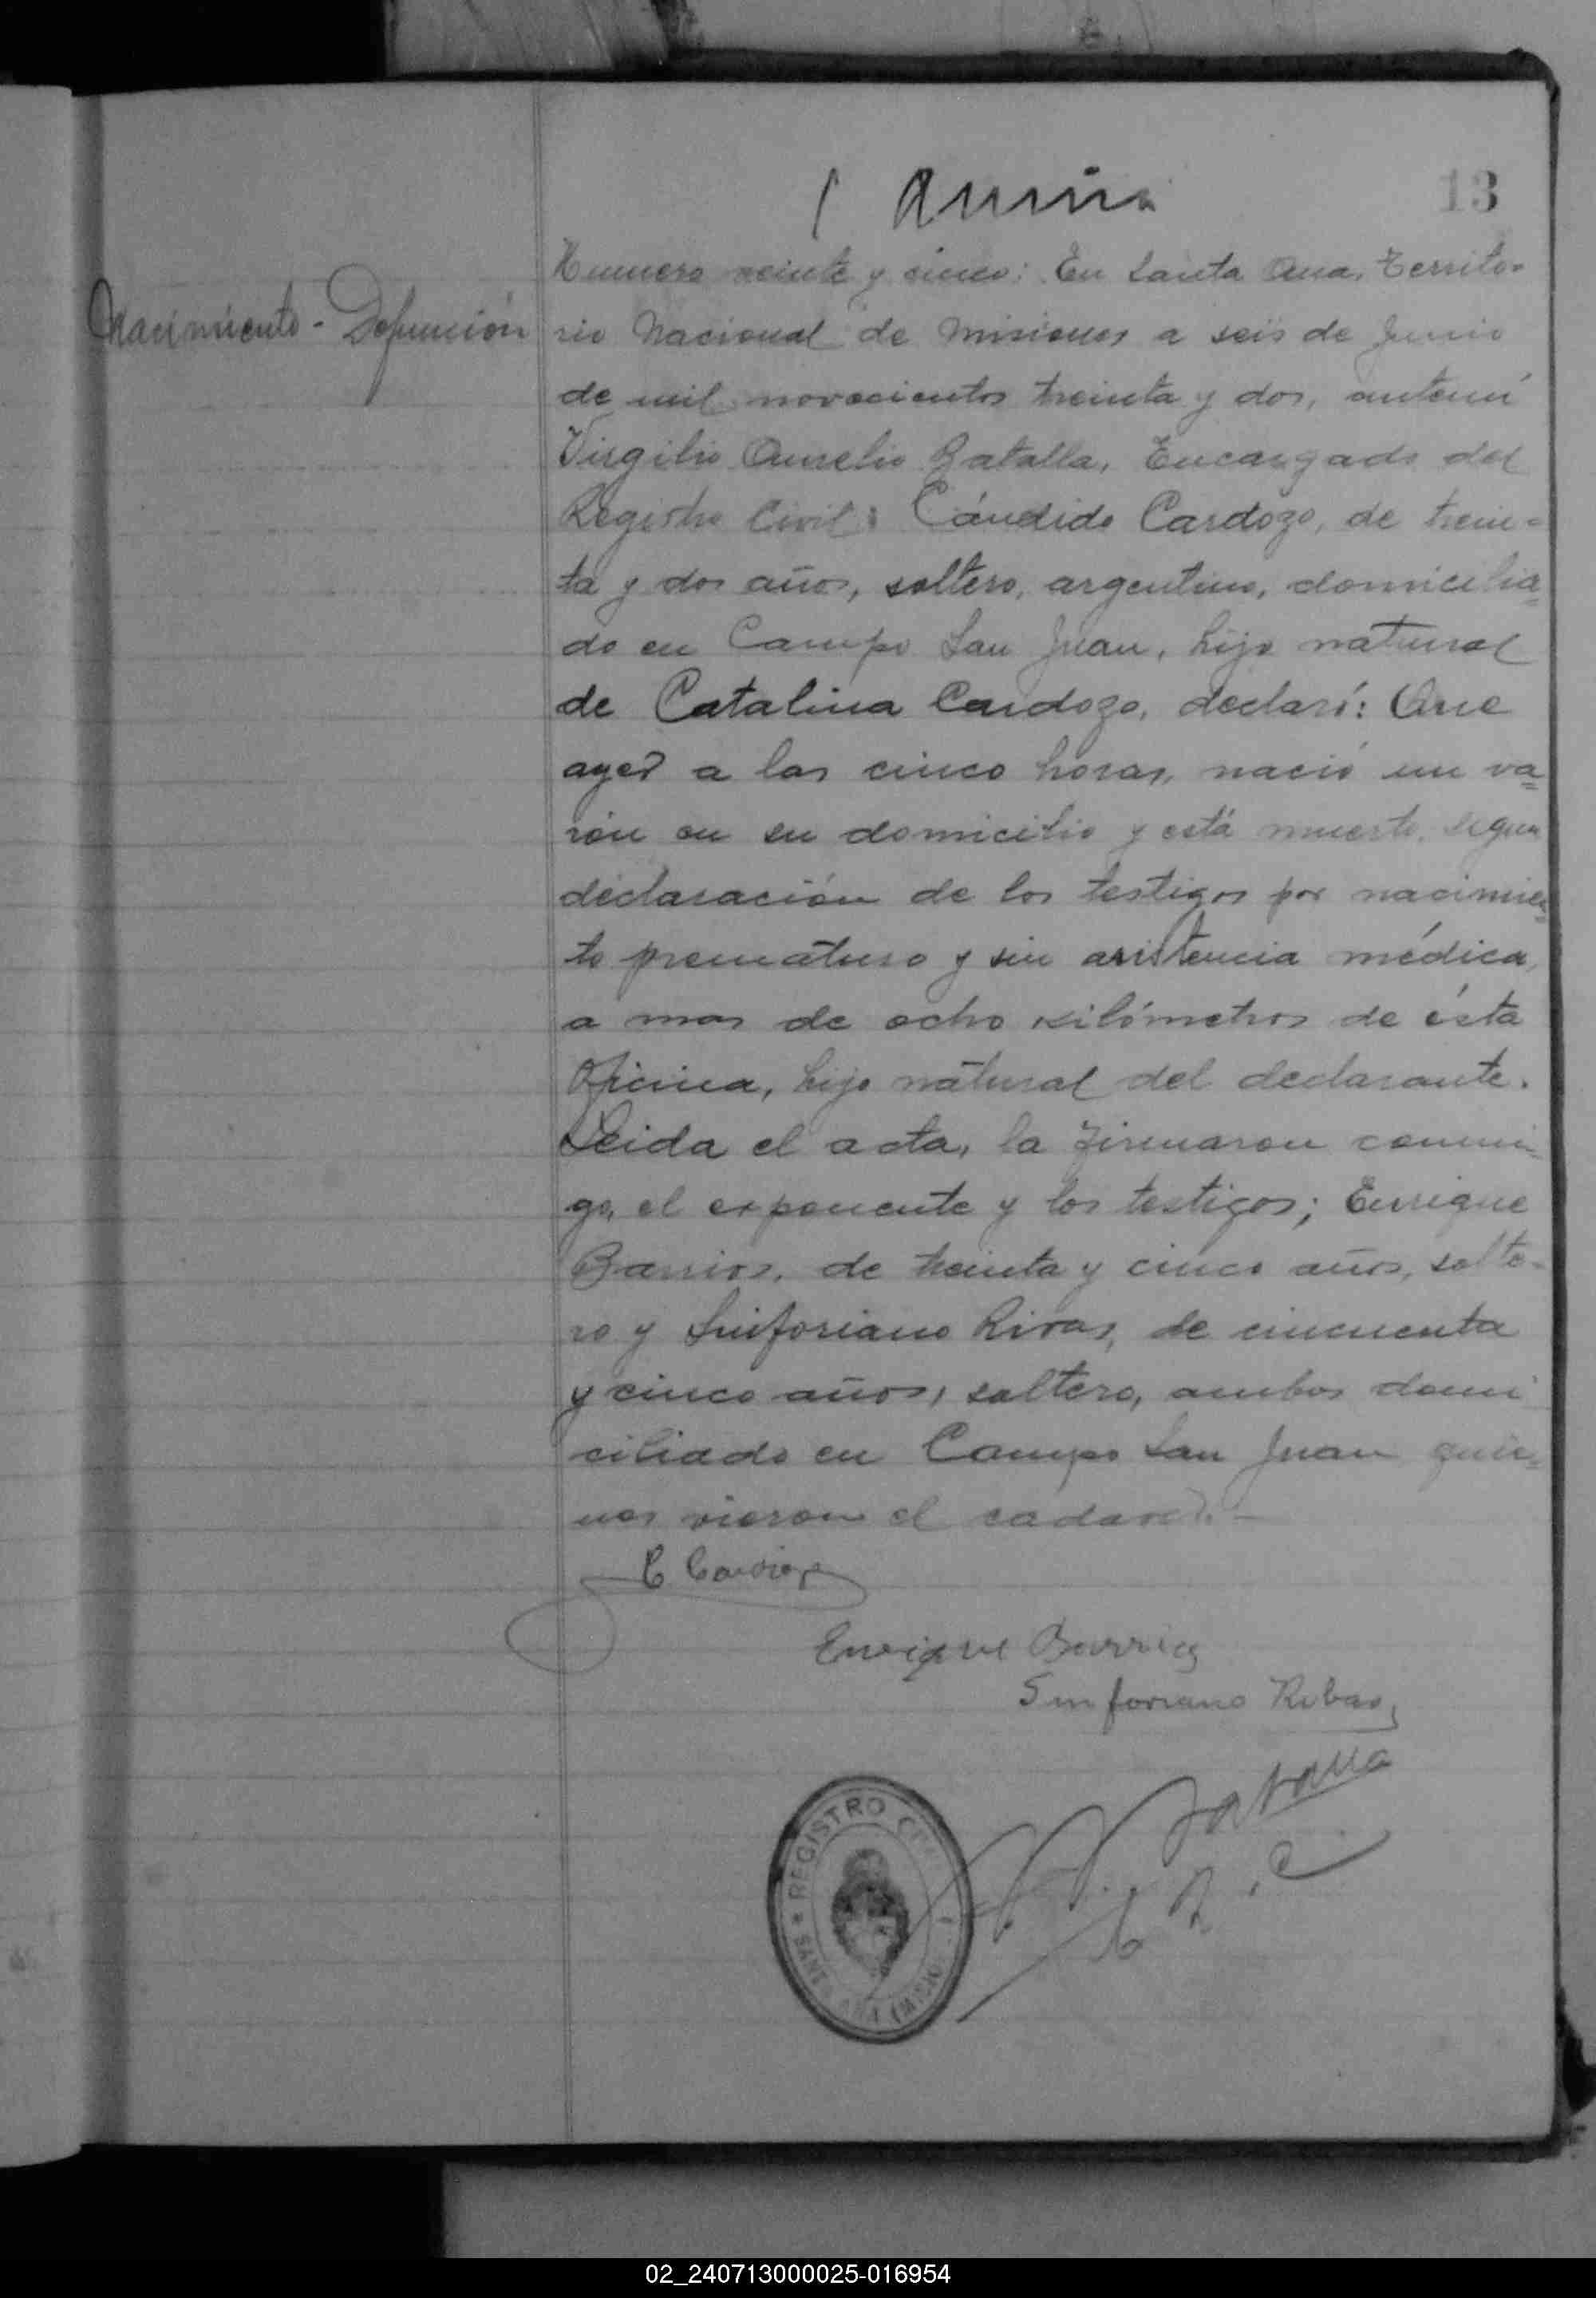 13
Nacimiento - Defunción
Numero veinte y cinco: En Santa Ana, Territo-
rio Nacional de Misiones a seis de Junio
de mil novecientos treinta y dos, ante mí
Virgilio Aurelio Batalla, Encargado del
Registro Civil: Cándido Cardozo, de trein=
ta y dos años, soltero, argentino, domicilia=
do en Campo San Juan, hijo natural
de Catalina Cardozo, declaró: Que
ayer a las cinco horas, nació un va=
rón en su domicilio y está muerto, segun
declaración de los testigos por nacimien=
to prematuro y sin asistencia médica,
a mas de ocho kilómetros de ésta
Oficina, hijo natural del declarante.
Leida el acta, la firmaron conmi=
go, el exponente y los testigos; Enrique
Barrios, de treinta y cinco años, solte-
ro y Sinforiano Rivas, de cincuenta
y cinco años, soltero, ambos domi
ciliado en Campo San Juan quie=
nes vieron el cadaver.-
C Cardozo
Enrique Barrios
Sinforiano Ribas
Batalla
E. R. C
REGISTRO CIVIL
SANTA ANA (MISIONES)
02_240713000025-016954